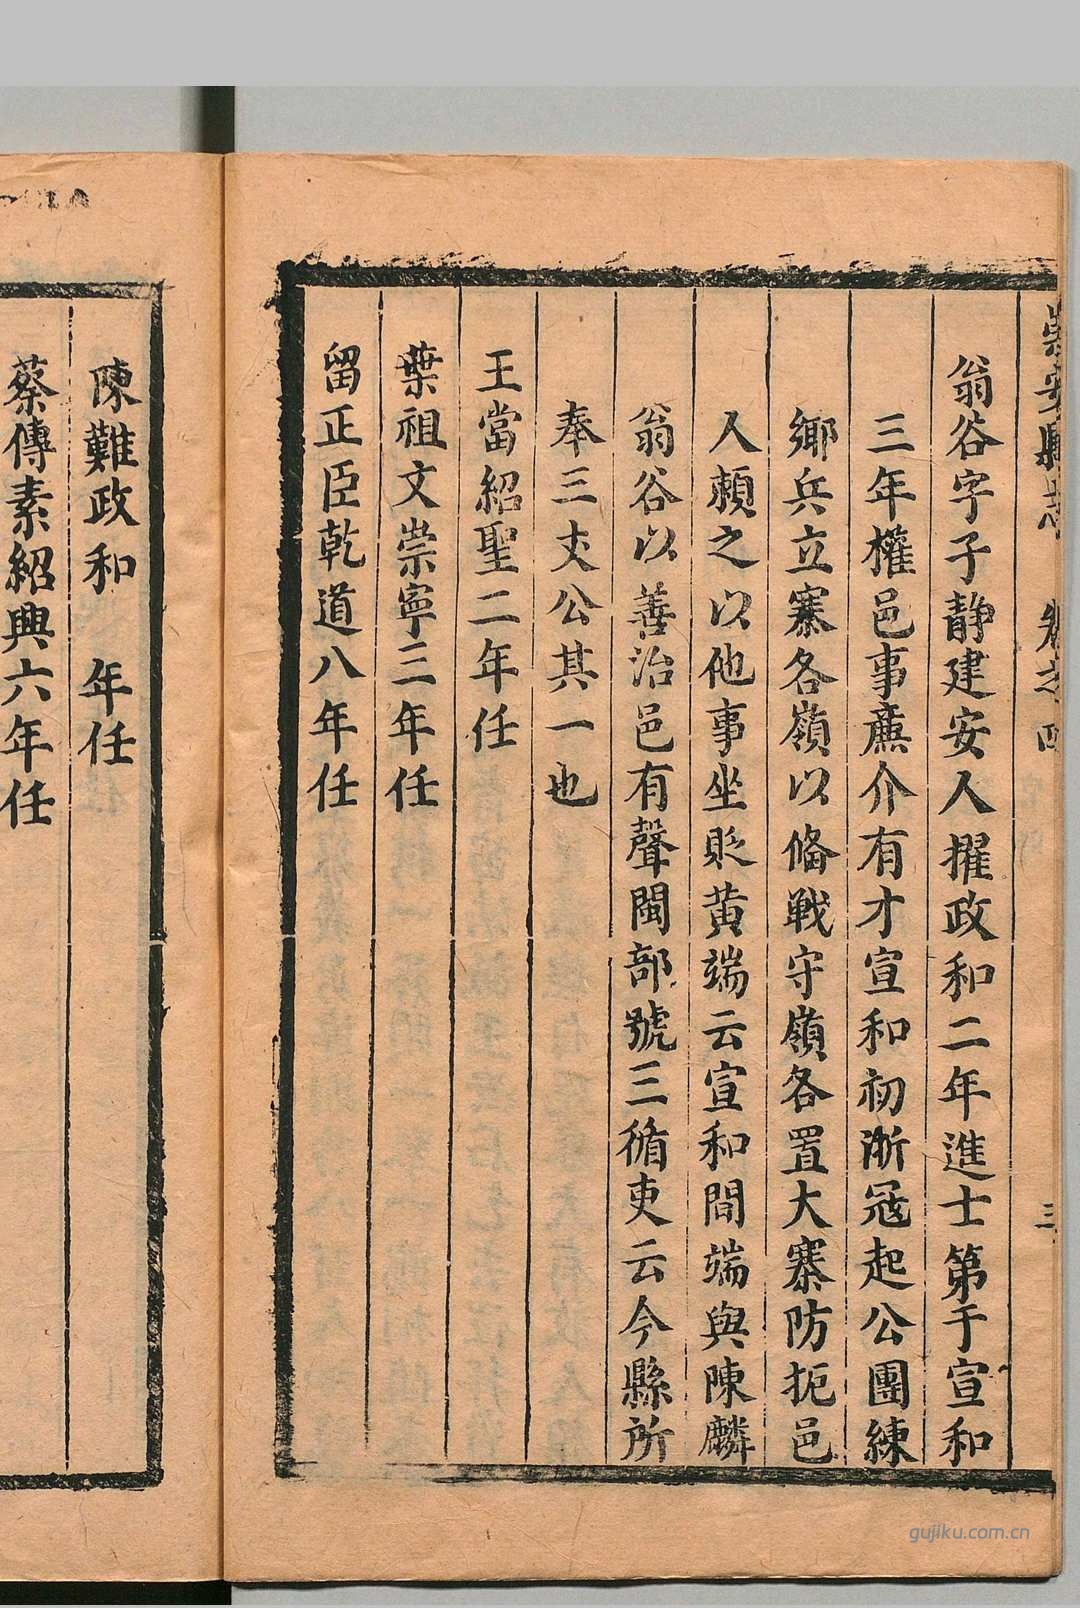 崇安縣志 卷之四 三
翁谷字子靜建安人擢政和二年進士第于宣和
三年權邑事亷介有才宣和初浙冦起公團練
鄉兵立寨各嶺以俻戰守嶺各置大寨防扼邑
人賴之以他事坐貶黄端云宣和間端與陳麟
翁谷以善治邑有聲閩部號三循吏云今縣所
奉三丈公其一也
王當紹聖二年任
葉祖文崇寧三年任
留正臣乾道八年任
陳難政和 年任
蔡傳素紹興六年任
gujiku.com.cn